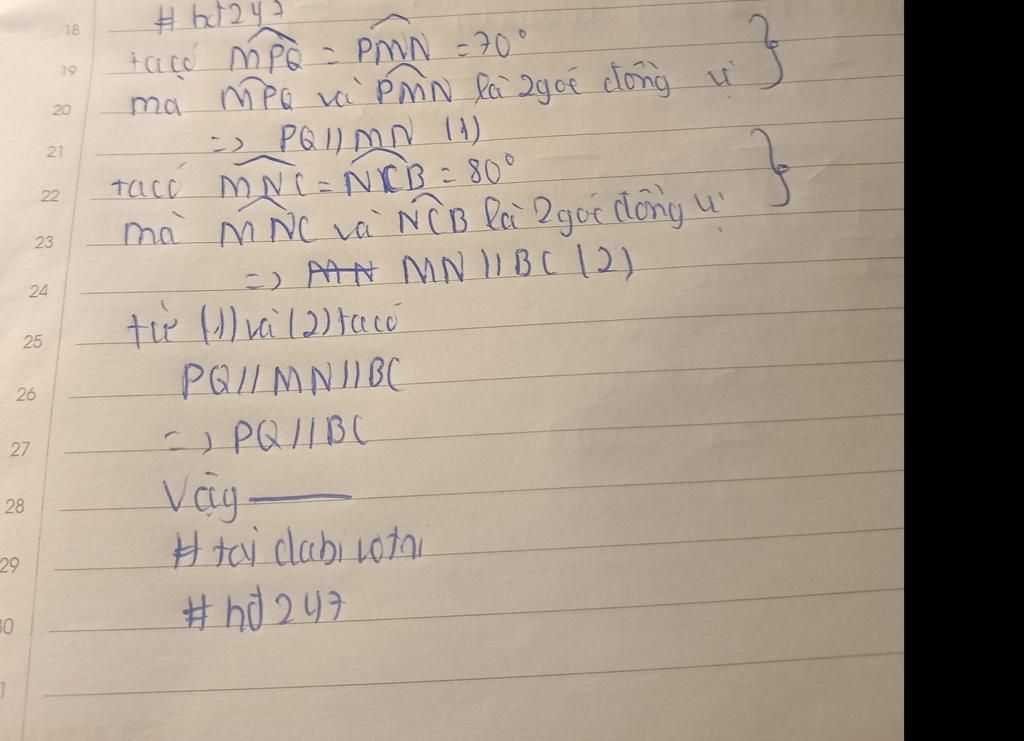 18 # hđ247
19 ta có MPQ = PMN = 70°
20 mà MPQ và PMN là 2 góc đồng vị
21 => PQ // MN (1)
22 ta có MNC = NCB = 80°
23 mà MNC và NCB là 2 góc đồng vị
24 => MN MN // BC (2)
25 từ (1) và (2) ta có
26 PQ // MN // BC
27 => PQ // BC
28 Vậy
29 # tại
30 # hđ247